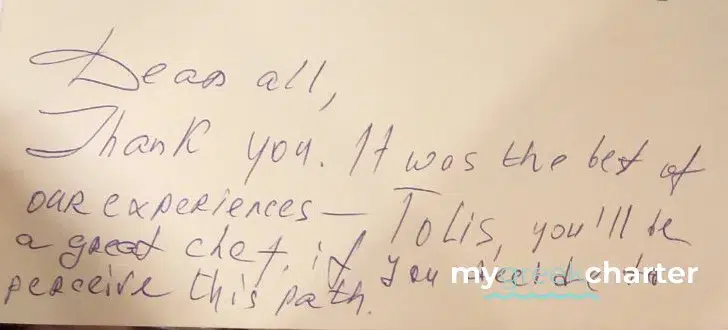 Dear all,
Thank you. It was the best of
our experiences — Tolis, you'll be
a great chef, if you decide to
perceive this path.
mygreekcharter